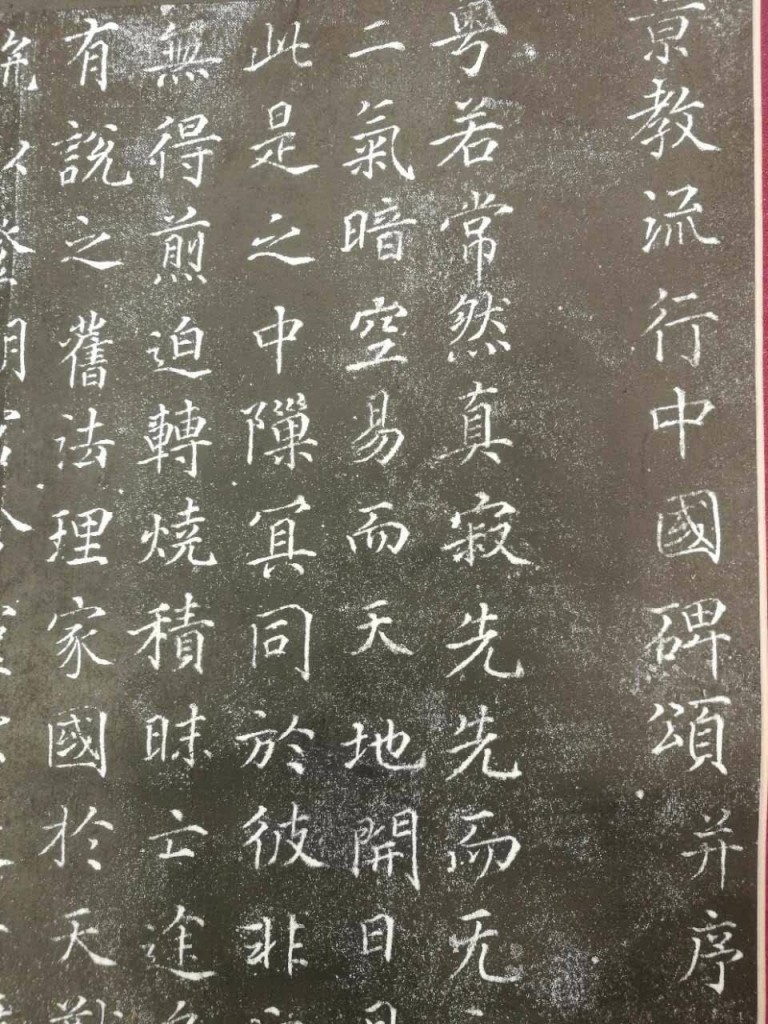 景教流行中國碑頌并序
粵若常然真寂先先而无
二氣暗空易而天地開日月
此是之中隟冥同於彼非
無得煎迫轉燒積昧亡途
有說之舊法理家國於天猷